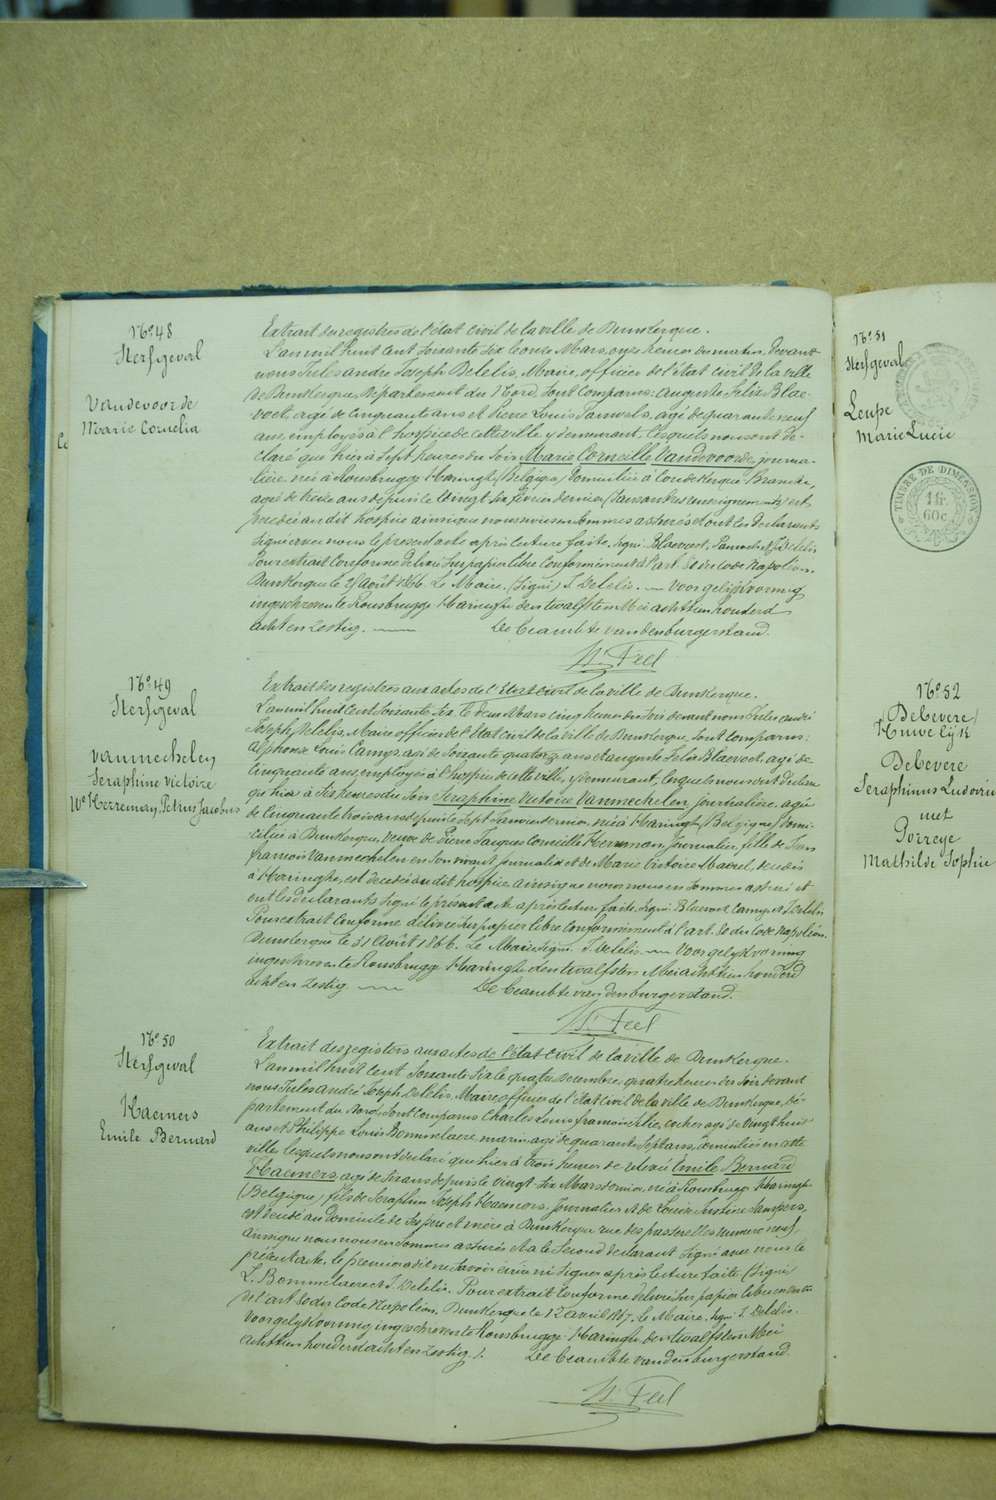 No. 48
Sterfgeval
Vandevoorde
Marie Cornelia
Extrait des registres de l'état civil de la ville de Dunkerque.
L'an mil huit cent soixante six le onze Mars, onze heures du matin, devant
nous Jules andré Joseph Delelis, Maire, officier de l'état civil de la ville
de Dunkerque, Département du Nord, sont comparus: auguste Felix Blae-
voet, agé de cinquante ans et Pierre Louis Pauwels, agé de quarante neuf
ans, employés à l'hospice de cette ville y demeurant, lesquels nous ont dé-
claré que hier à sept heures du soir Marie Corneille Vandevoorde, journa-
lière née à Rousbrugge Haringhe (Belgique) domiciliée à Coudekerque Branche,
agée de treize ans depuis le vingt six février dernier (sans autres renseignements) est
décédée au dit hospice ainsi que nous nous en sommes assurés et ont les déclarants
signé avec nous le présent acte après lecture faite. Signé: Blaevoet, Pauwels et J. Delelis
Pour extrait conforme délivré sur papier libre conformément à l'art. 80 du code Napoléon.
Dunkerque le 31 Août 1866. Le Maire (signé) J. Delelis. — Voor gelijkvormig
ingeschreven te Rousbrugge Haringhe den twalfsten Mei achttien honderd
acht en zestig. — De Beambte van den burgerstand.
No. 49
Sterfgeval
Vanmechelen
Seraphine Victoire
We Herreman, Petrus Jacobus
Extrait des registres aux actes de l'Etat civil de la ville de Dunkerque.
L'an mil huit cent soixante six le deux Mars cinq heures du soir devant nous Jules andré
Joseph Delelis, Maire officier de l'état civil de la ville de Dunkerque, sont comparus:
alphonse Louis Camps, agé de soixante quatorze ans et auguste Felix Blaevoet, agé de
cinquante ans, employés à l'hospice de cette ville, y demeurant, lesquels nous ont déclaré
que hier à six heures du soir Seraphine Victoire Vanmechelen, journalière, agée
de cinquante trois ans depuis le sept Janvier dernier, née à Haringhe (Belgique) domi-
ciliée à Dunkerque, veuve de Pierre Jacques Corneille Herreman, journalier, fille de Jean
françois Vanmechelen en son vivant journalier et de Marie Victoire décédés
à Haringhe, est décédée au dit hospice, ainsi que nous nous en sommes assurés et
ont les déclarants signé le présent acte après lecture faite. Signé: Blaevoet, Camps et J. Delelis
Pour extrait conforme délivré sur papier libre conformément à l'art. 80 du code Napoléon.
Dunkerque le 31 Août 1866. Le Maire signé J. Delelis. — Voor gelijkvormig
ingeschreven te Rousbrugge Haringhe den twalfsten Mei achttien honderd
acht en zestig — De Beambte van den burgerstand.
No. 50
Sterfgeval
Haemers
Emile Bernard
Extrait des registers aux actes de l'état civil de la ville de Dunkerque.
L'an mil huit cent soixante six le quatre Decembre, quatre heures du soir devant
nous Jules andré Joseph Delelis Maire officier de l'état civil de la ville de Dunkerque, Dé-
partement du Nord, sont comparus Charles Louis françois cocher agé de vingt huit
ans et Philippe Louis Bommelaere, marin agé de quarante sept ans, domiciliés en cette
ville lesquels nous ont déclaré que hier à trois heures de relevée Emile Bernard
Haemers, agé de six ans depuis le vingt-six Mars dernier, né à Rousbrugge Haringhe
(Belgique) fils de Seraphin Joseph Haemers, journalier et de Louise
est décédé au domicile de ses père et mère à Dunkerque rue des passerelles numéro neuf,
ainsi que nous nous en sommes assurés et a le second déclarant signé avec nous le
présent acte, le premier a dit ne savoir écrire ni signer après lecture faite (Signé)
L. Bommelaere et J. Delelis. Pour extrait conforme délivré sur papier libre en vertu
de l'art 80 du Code Napoléon. Dunkerque le 12 avril 1867, le Maire, signé J. Delelis.
Voor gelijkvormig ingeschreven te Rousbrugge-Haringhe den twalfsten Mei
achttien honderd acht en zestig /. De Beambte van den burgerstand.
No. 51
Sterfgeval
Leupe
Marie Lucie
TIMBRE DE DIMENSION
1 fr
60 c.
No. 52
Debevere/
Huwelijk
Debevere
Seraphinus Ludovicus
met
Porreye
Mathilde Sophie